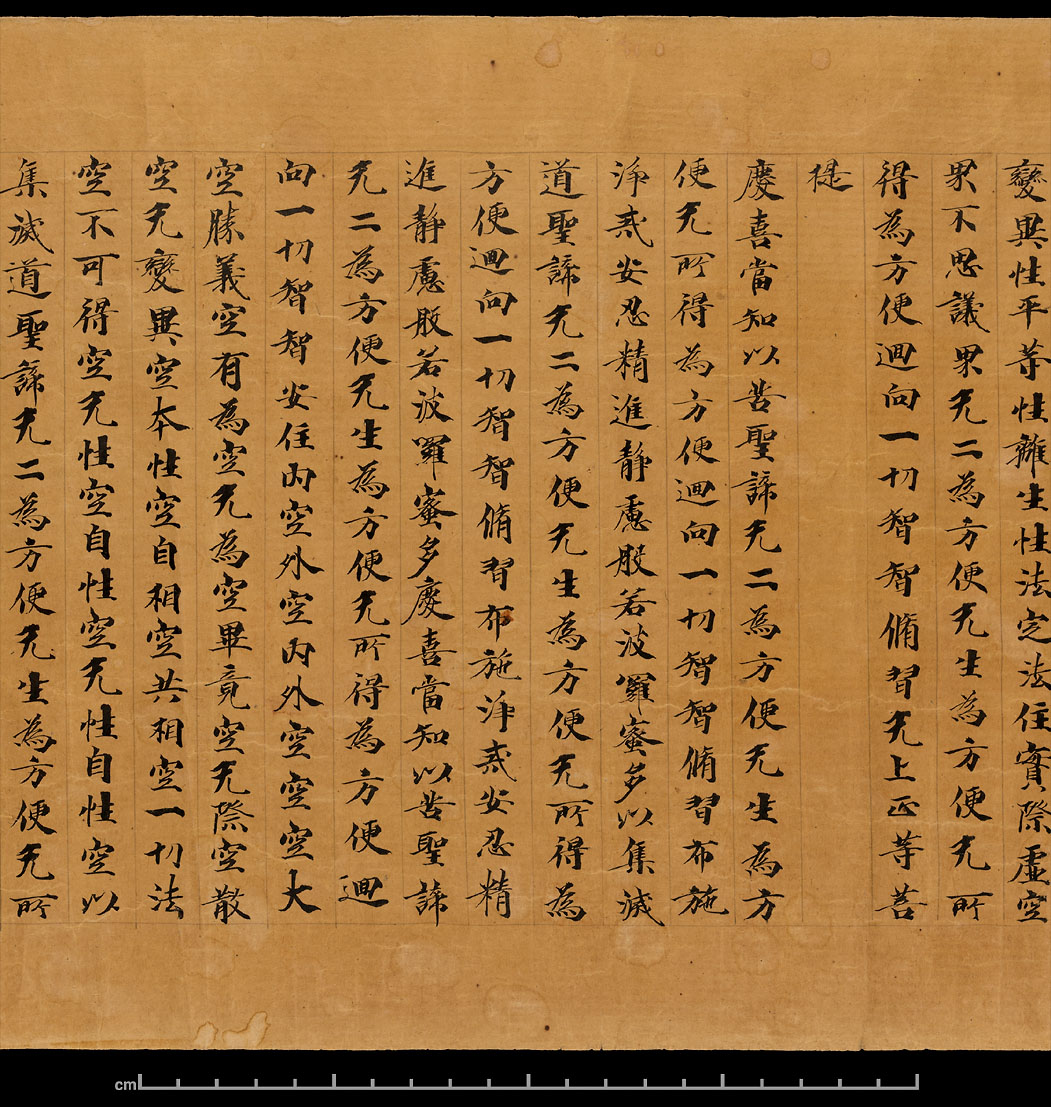 變異性平等性離生性法定法住實際虛空
界不思議界无二為方便无生為方便无所
得為方便迴向一切智智脩習无上正等菩
提
慶喜當知以苦聖諦无二為方便无生為方
便无所得為方便迴向一切智智脩習布施
淨戒安忍精進靜慮般若波羅蜜多以集滅
道聖諦无二為方便无生為方便无所得為
方便迴向一切智智脩習布施淨戒安忍精
進靜慮般若波羅蜜多慶喜當知以苦聖諦
无二為方便无生為方便无所得為方便迴
向一切智智安住內空外空內外空空空大
空勝義空有為空无為空畢竟空无際空散
空无變異空本性空自相空共相空一切法
空不可得空无性空自性空无性自性空以
集滅道聖諦无二為方便无生為方便无所
cm